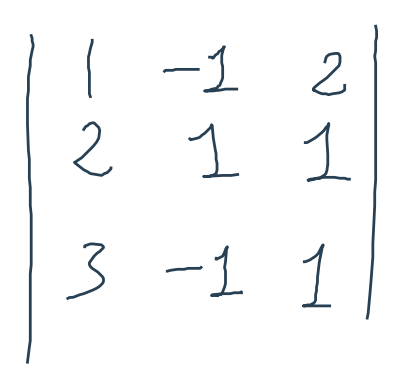 | 1 -1 2 |
| 2 1 1 |
| 3 -1 1 |